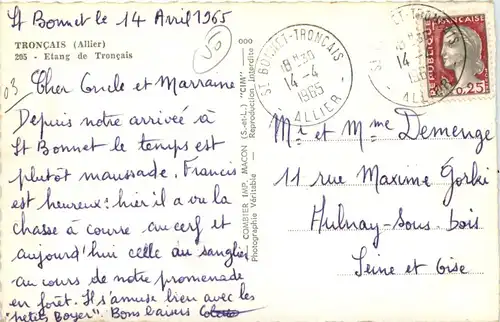 St Bonnet le 14 Avril 1965
TRONÇAIS (Allier)
205 - Etang de Tronçais
03
Cher Oncle et Marraine
Depuis notre arrivée à
St Bonnet le temps est
plutôt maussade. Francis
est heureux : hier il a vu la
chasse à courre au cerf et
aujourd'hui celle au sanglier
au cours de notre promenade
en forêt. Il s'amuse bien avec les
"petits Boyer". Bons baisers
COMBIER IMP. MACON (S.-et-L.) "CIM"
Photographie Véritable - Reproduction Interdite
ST BONNET-TRONÇAIS
18H30
14-4
1965
ALLIER
REPUBLIQUE FRANÇAISE
0,25
Mr et Mme Demenge
11 rue Maxime Gorki
Aulnay-Sous-bois
Seine et Oise